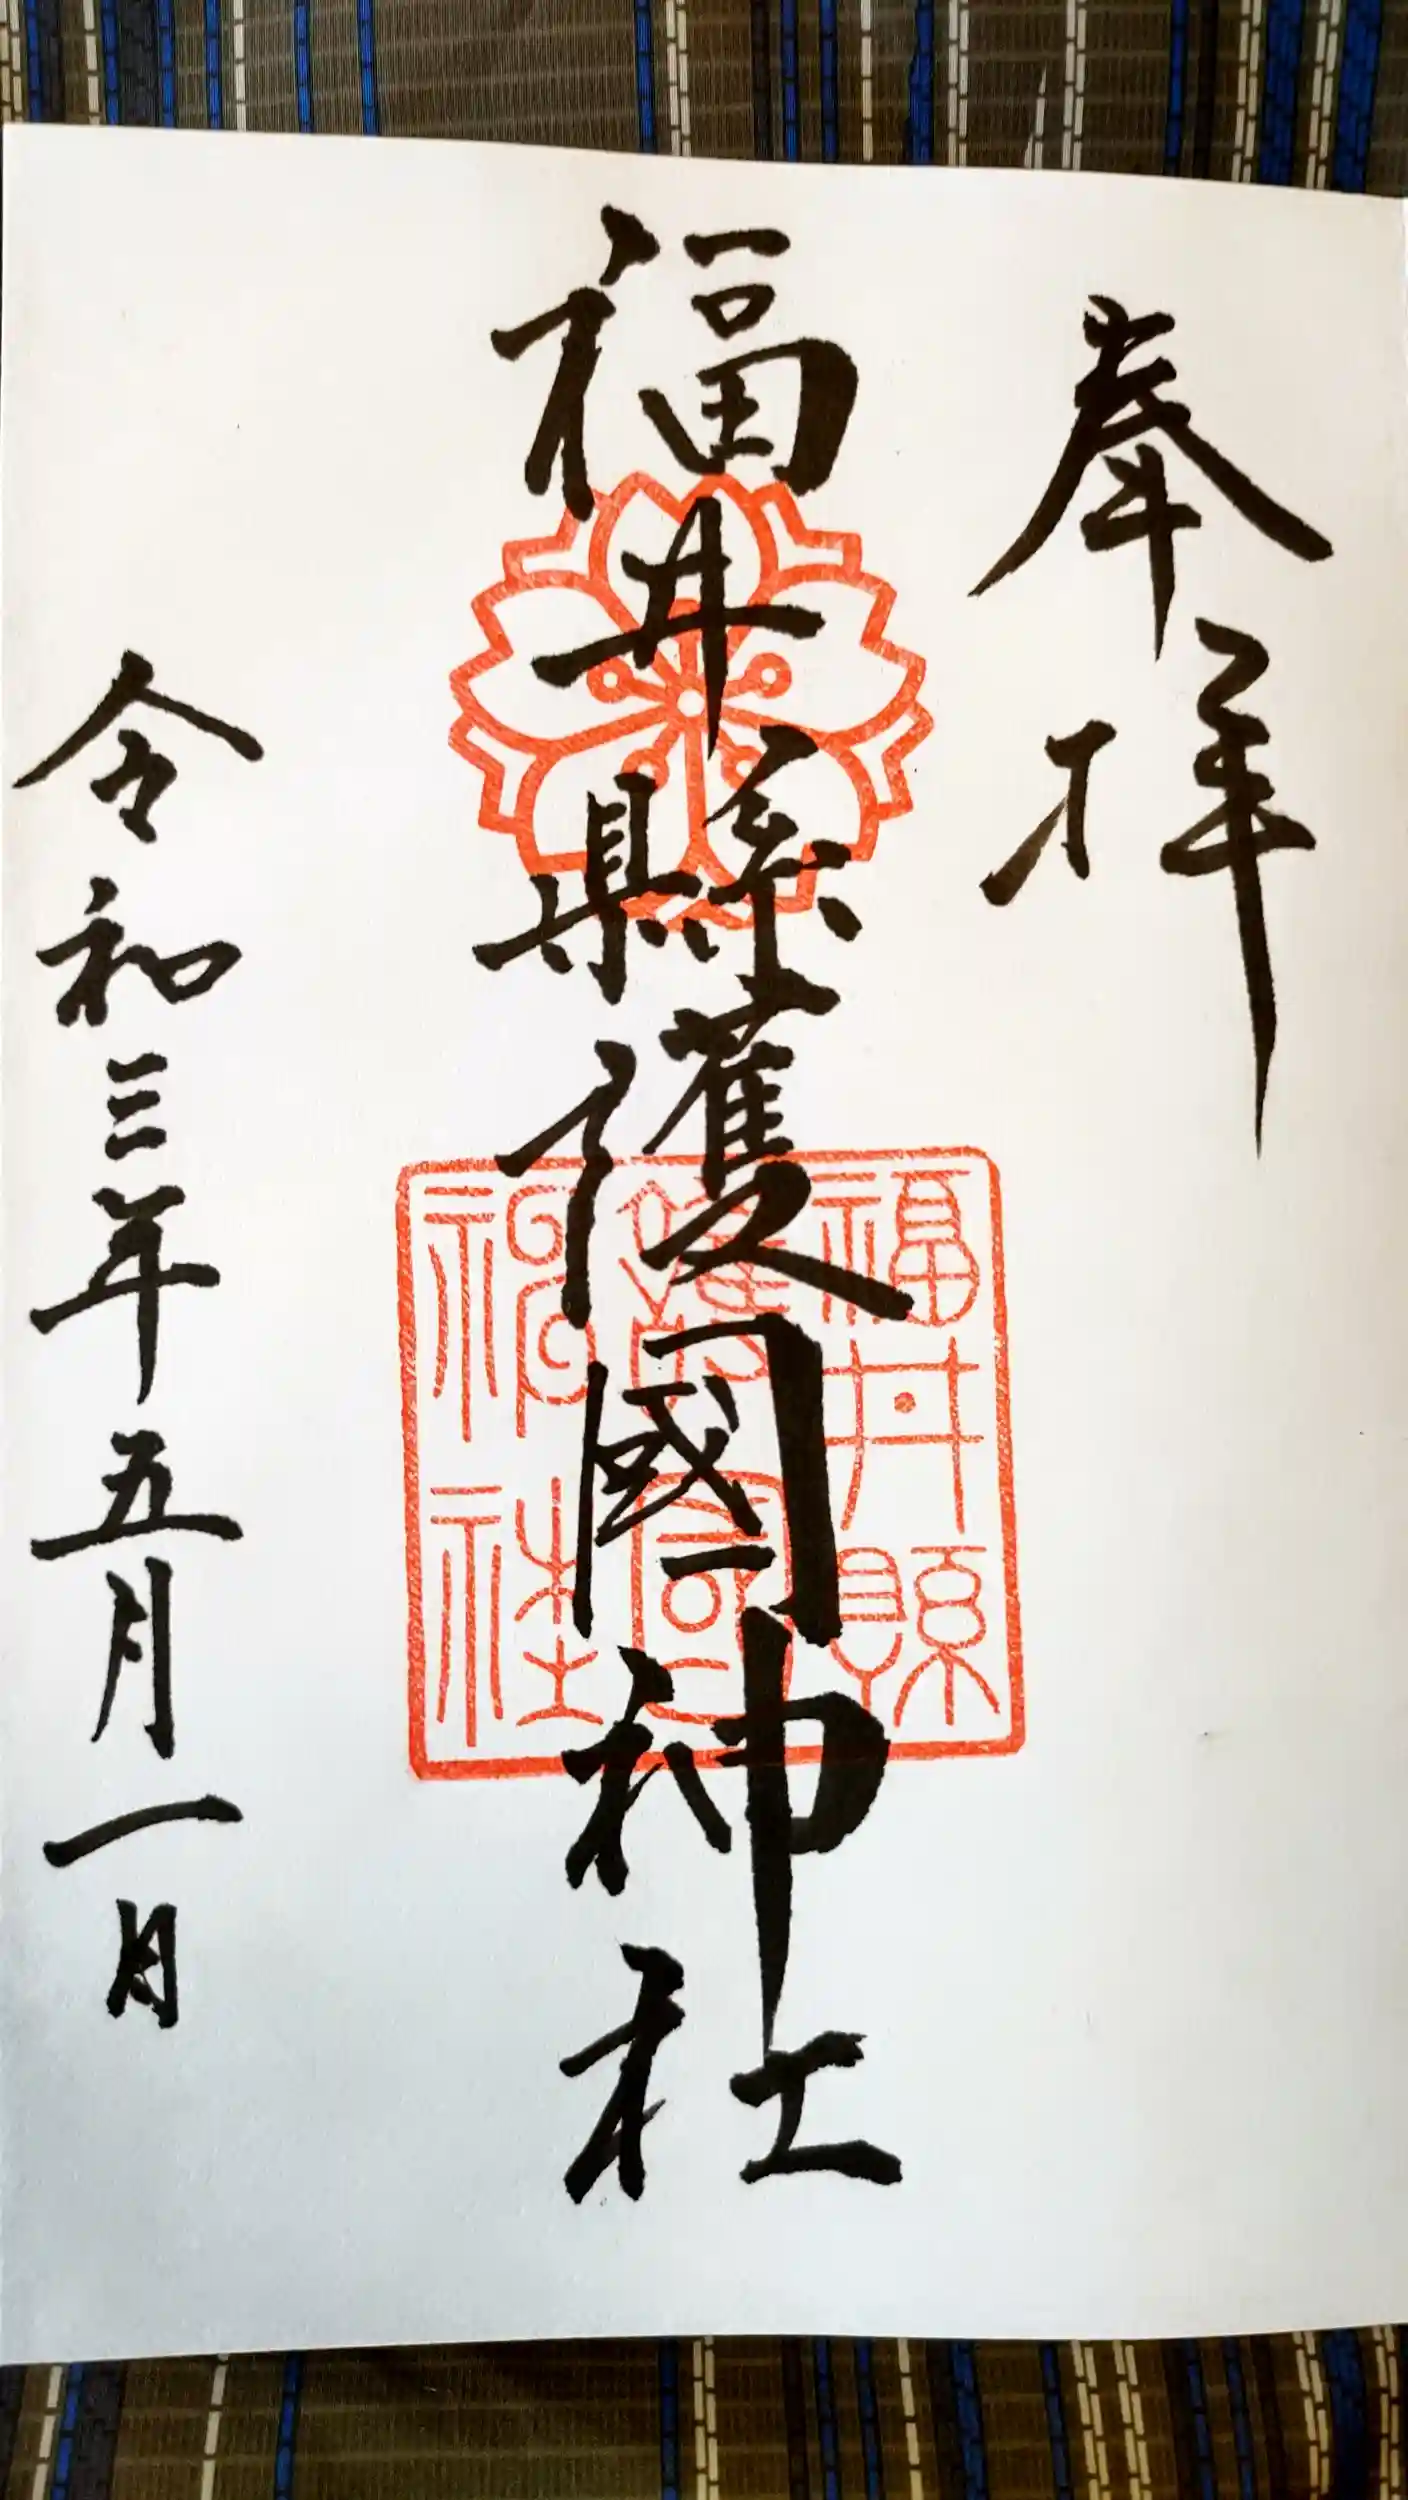 奉拝
福井縣護國神社
令和三年五月一日
福井縣
護國
神社